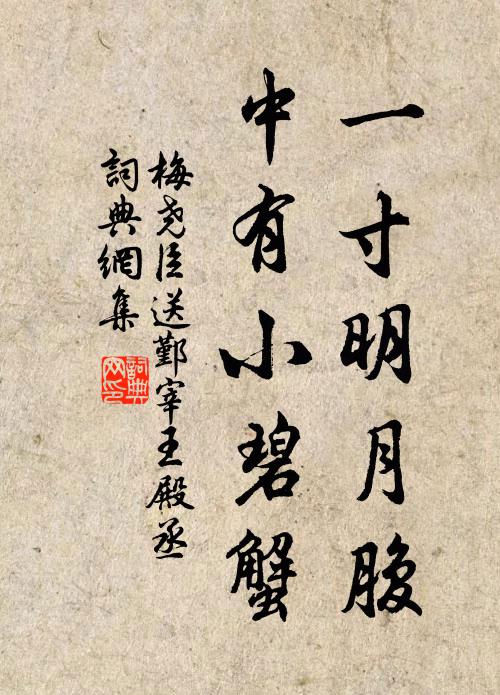 一寸明月腹
中有小碧蟹
梅尧臣送鄞宰王殿丞
詞典網集
詞典网印